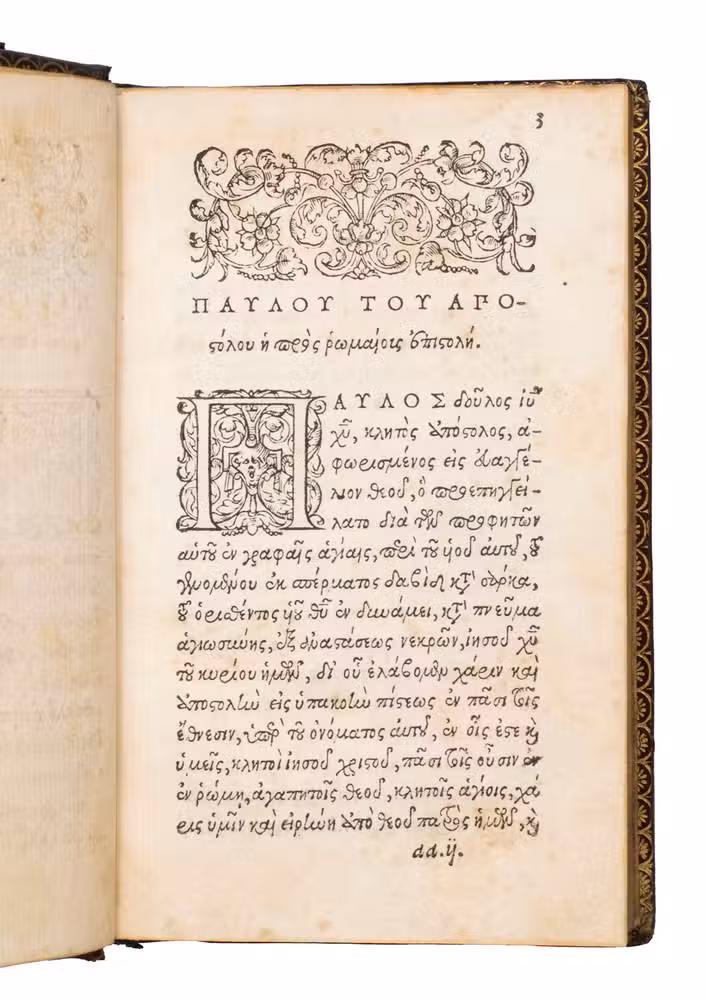 3
ΠΑΥΛΟΥ ΤΟΥ ΑΠΟ-
ϛόλου ἡ πρὸς ῥωμαίοις ἐπιϛολή.
ΠΑΥΛΟΣ δοῦλος ἰῦ
χῦ, κλητὸς ἀπόϛολος, ἀ-
φωρισμένος εἰς εὐαγγέ-
λιον θεοῦ, ὃ προεπηγγεί-
λατο διὰ τῶν προφητῶν
αὑτοῦ ἐν γραφαῖς ἁγίαις, περὶ τοῦ υἱοῦ αὑτοῦ, τοῦ
γενομένου ἐκ σπέρματος δαβὶδ κατὰ σάρκα,
τοῦ ὁρισθέντος υἱοῦ θῦ ἐν δυνάμει, κατὰ πνεῦμα
ἁγιωσύνης, ἐξ ἀναστάσεως νεκρῶν, ἰησοῦ χῦ
τοῦ κυρίου ἡμῶν, δι' οὗ ἐλάβομεν χάριν καὶ
ἀποϛολὴν εἰς ὑπακοὴν πίϛεως ἐν πᾶσι τοῖς
ἔθνεσιν, ὑπὲρ τοῦ ὀνόματος αὐτοῦ, ἐν οἷς ἐϛε καὶ
ὑμεῖς, κλητοὶ ἰησοῦ χριϛοῦ, πᾶσι τοῖς οὖσιν
ἐν ῥώμῃ, ἀγαπητοῖς θεοῦ, κλητοῖς ἁγίοις, χά
ρις ὑμῖν καὶ εἰρήνη ἀπὸ θεοῦ πατρὸς ἡμῶν, καὶ
dd.ij.